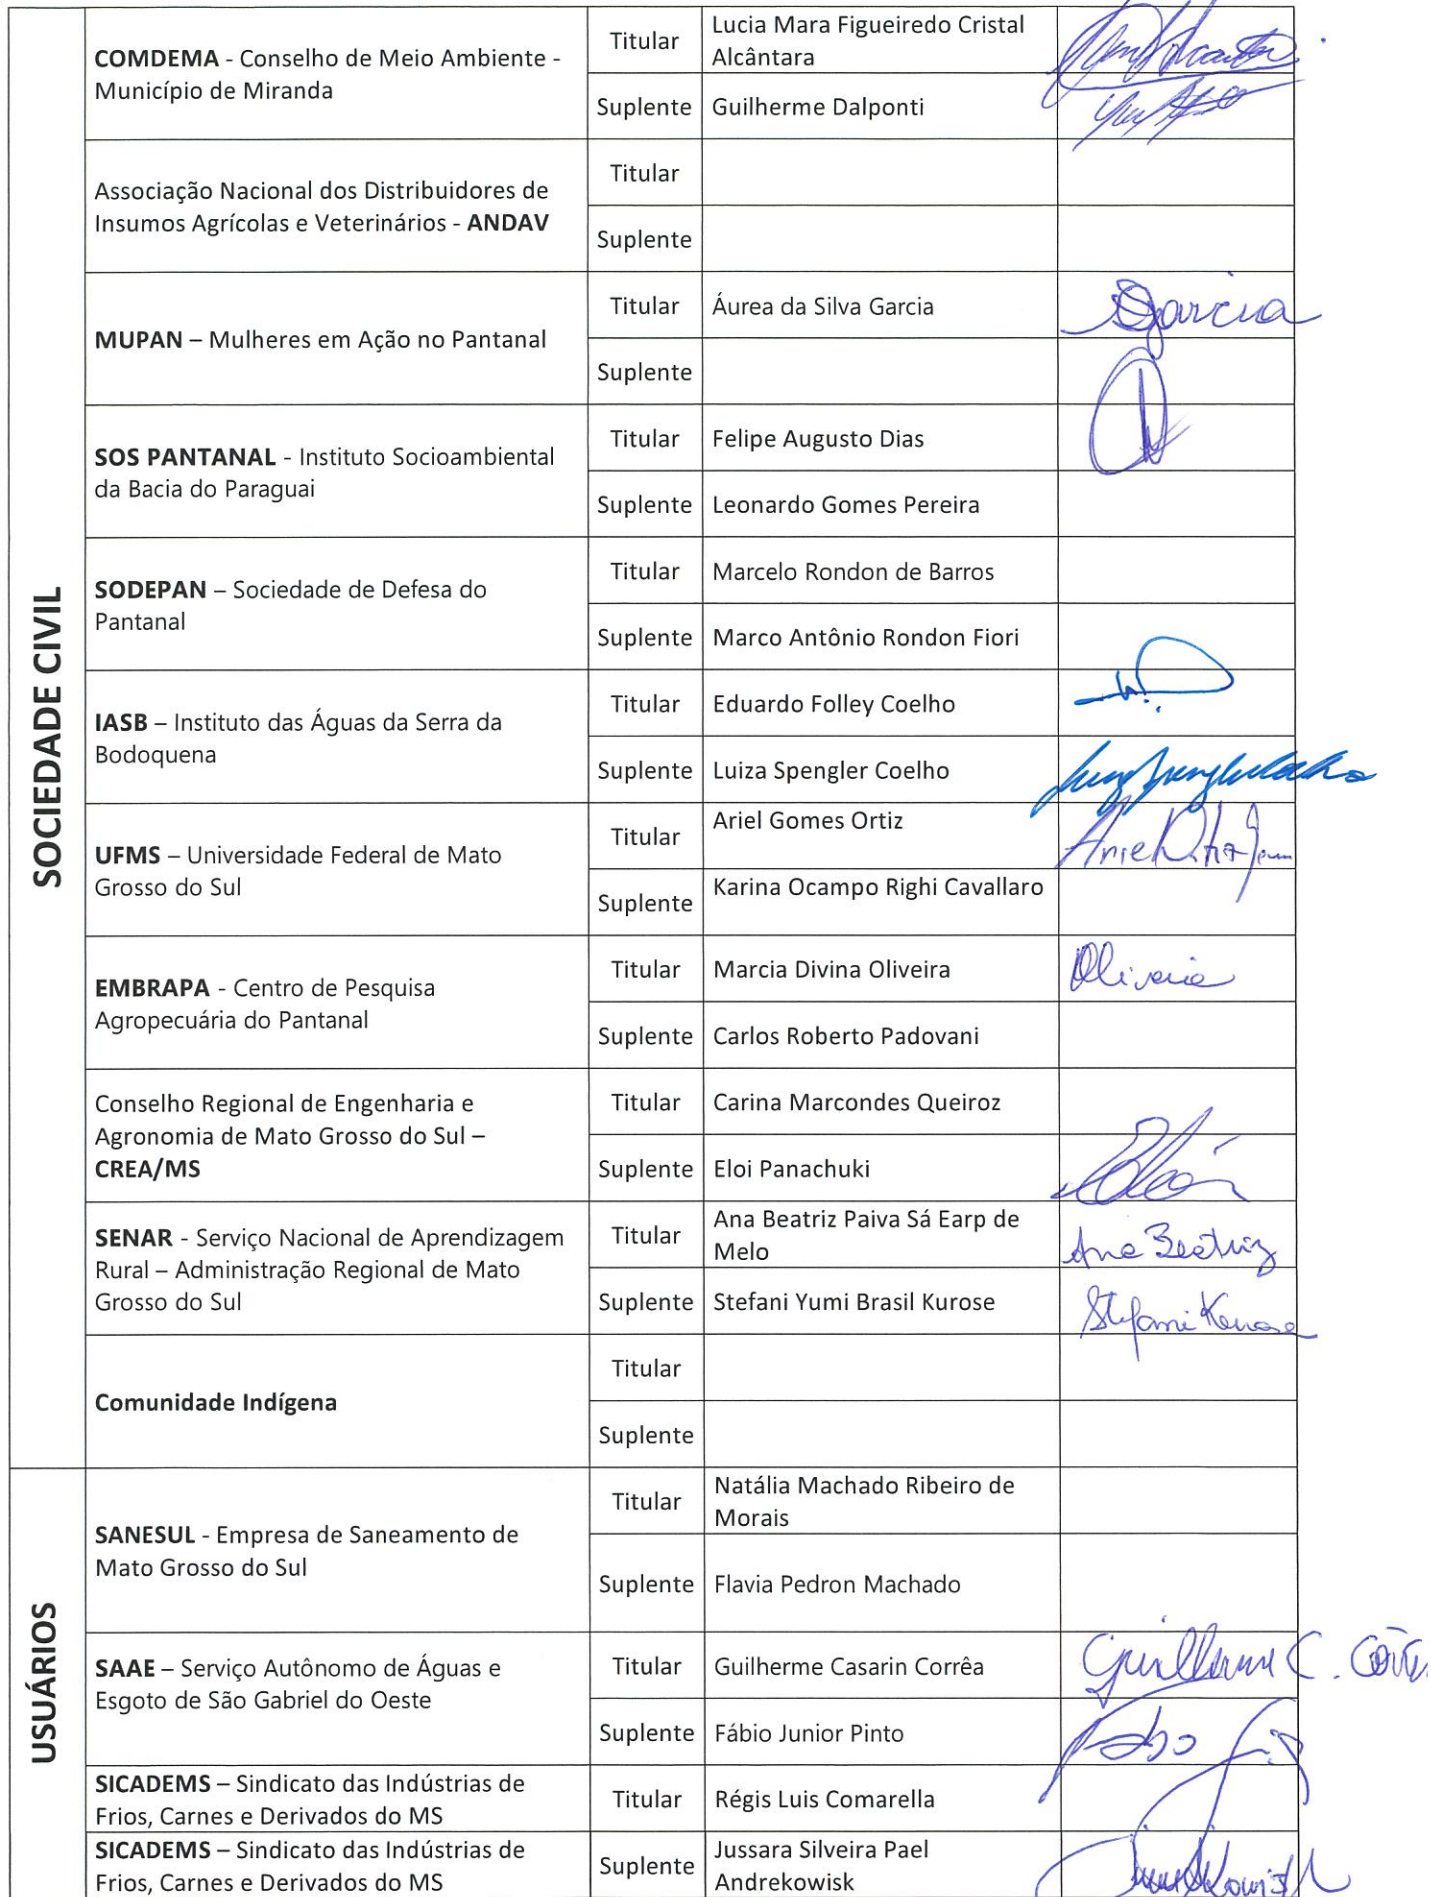 SOCIEDADE CIVIL
COMDEMA - Conselho de Meio Ambiente -
Município de Miranda
Titular
Lucia Mara Figueiredo Cristal
Alcântara
Suplente
Guilherme Dalponti
Associação Nacional dos Distribuidores de
Insumos Agrícolas e Veterinários - ANDAV
Titular
Suplente
MUPAN – Mulheres em Ação no Pantanal
Titular
Áurea da Silva Garcia
Garcia
Suplente
SOS PANTANAL - Instituto Socioambiental
da Bacia do Paraguai
Titular
Felipe Augusto Dias
Suplente
Leonardo Gomes Pereira
SODEPAN – Sociedade de Defesa do
Pantanal
Titular
Marcelo Rondon de Barros
Suplente
Marco Antônio Rondon Fiori
IASB – Instituto das Águas da Serra da
Bodoquena
Titular
Eduardo Folley Coelho
Suplente
Luiza Spengler Coelho
UFMS – Universidade Federal de Mato
Grosso do Sul
Titular
Ariel Gomes Ortiz
Ariel
Suplente
Karina Ocampo Righi Cavallaro
EMBRAPA - Centro de Pesquisa
Agropecuária do Pantanal
Titular
Marcia Divina Oliveira
Oliveira
Suplente
Carlos Roberto Padovani
Conselho Regional de Engenharia e
Agronomia de Mato Grosso do Sul –
CREA/MS
Titular
Carina Marcondes Queiroz
Suplente
Eloi Panachuki
SENAR - Serviço Nacional de Aprendizagem
Rural – Administração Regional de Mato
Grosso do Sul
Titular
Ana Beatriz Paiva Sá Earp de
Melo
Ana Beatriz
Suplente
Stefani Yumi Brasil Kurose
Stefani Kurose
Comunidade Indígena
Titular
Suplente
USUÁRIOS
SANESUL - Empresa de Saneamento de
Mato Grosso do Sul
Titular
Natália Machado Ribeiro de
Morais
Suplente
Flavia Pedron Machado
SAAE – Serviço Autônomo de Águas e
Esgoto de São Gabriel do Oeste
Titular
Guilherme Casarin Corrêa
Guilherme C.
Suplente
Fábio Junior Pinto
SICADEMS – Sindicato das Indústrias de
Frios, Carnes e Derivados do MS
Titular
Régis Luis Comarella
SICADEMS – Sindicato das Indústrias de
Frios, Carnes e Derivados do MS
Suplente
Jussara Silveira Pael
Andrekowisk